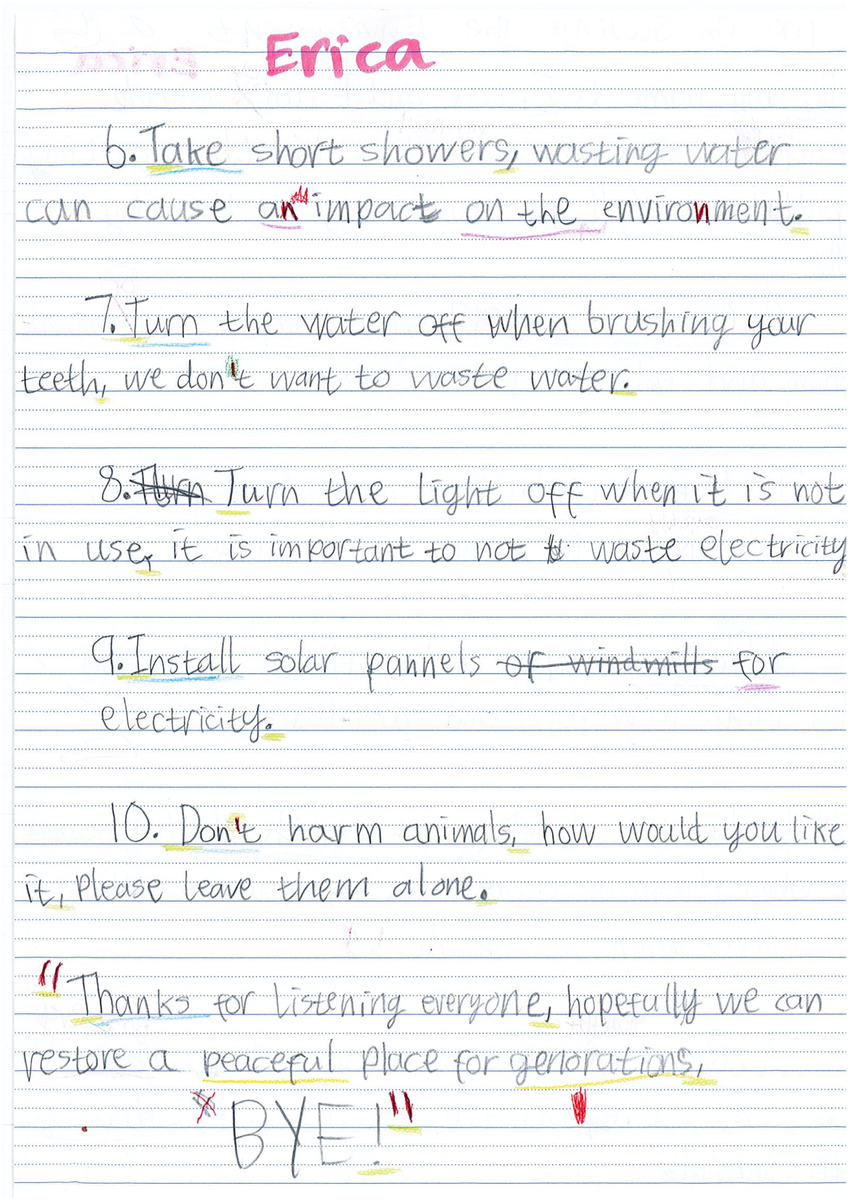 Erica
6. Take short showers, wasting water
can cause an impact on the environment.
7. Turn the water off when brushing your
teeth, we don't want to waste water.
8. Turn Turn the light off when it is not
in use, it is important to not waste electricity
9. Install solar pannels of windmills for
electricity.
10. Don't harm animals, how would you like
it, please leave them alone.
"Thanks for listening everyone, hopefully we can
restore a peaceful place for genorations,
BYE!"